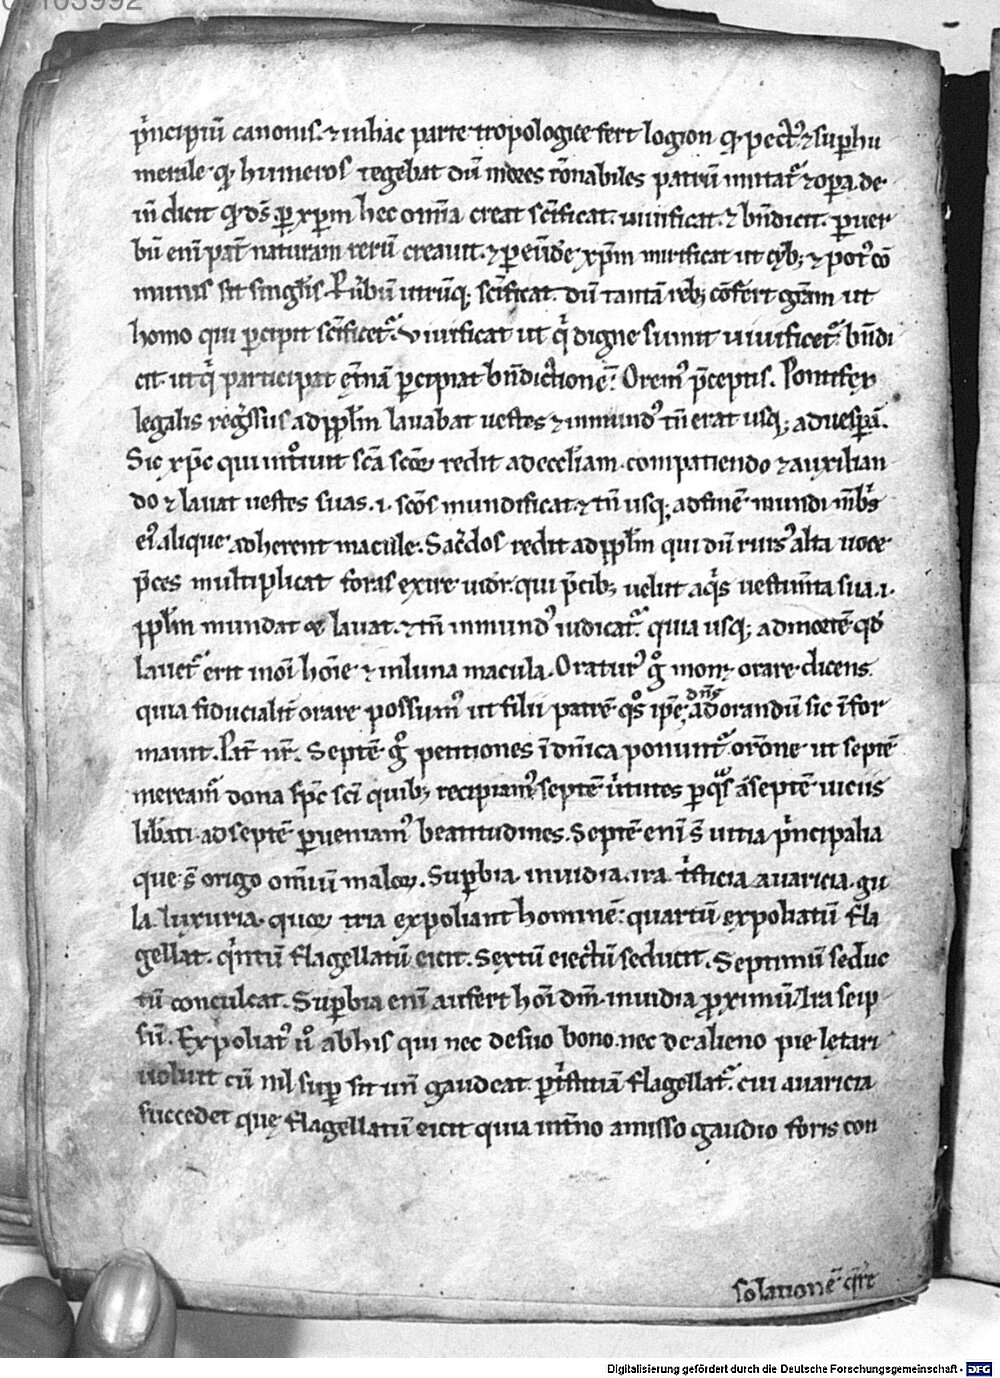 p̄ncipiū canonis. ⁊ in hac parte tropologice fert logion qđ pect⁹ ⁊ suphu
merale qđ humeros tegebat dū mores rōnabiles patrū imitat᷑ ⁊ opa. de
in dicit qđ ds̄ ꝑ xp̄m hec om̄ia creat sc̄ificat. uiuificat. ⁊ bn̄dicit. ꝑ uer
bū enī pat̄ naturam rerū creauit. ⁊ ꝑ eūde xp̄m mirificat ut cybꝫ ⁊ pot⁹ cō
munis sit singlis. Rūbū utrūqꝫ sc̄ificat. dū tantā rebꝫ cōfert gr̄am ut
homo qui ꝑcipit sc̄ificet᷑. Viuificat ut qⁱ digne sumit uiuificet᷑. bn̄di
cit. ut qⁱ participat et̄nā ꝑcipiat bn̄dictionē. Orem⁹ p̄ceptis. Pontifex
legalis reg̃ssus ad pplm̄ lauabat uestes ⁊ inmund⁹ tn̄ erat usqꝫ ad uespam̄.
Sic xp̄c qui int᷑uit sc̄a sc̄oꝝ redit ad eccl̄iam. compatiendo ⁊ auxilian
do ⁊ lauat uestes suas. i. sc̄os mundificat. ⁊ tn̄ usqꝫ ad finē mundi m̄bⁱs
ei⁹ alique adherent macule. Sac̄dos redit ad pplm̄ qui dū rurs⁹ alta uoce
p̄ces multiplicat foras exire uid᷑. qui p̄cibꝫ uelut aqⁱs uestim̄ta sua .i.
pplm̄ mundat ⁊ lauat. ⁊ tn̄ inmund⁹ iudicat᷑. quia usqꝫ ad mortē qđ
lauet᷑ erit in oī hōie ⁊ in luna macula. Oratur⁹ gͦ monꝫ orare dicens.
quia fiducialit̄ orare possum⁹ ut filii patrē qͦs ipe dn̄s adorandū sic īfor
mauit. Pat̄ nr̄. Septē gͦ petitiones ī dn̄ica ponunt᷑ orōne ut septē
meream᷑ dona sp̄c sc̄i quibꝫ recipiam⁹ septē ūtutes ꝑ qᷓs a septē uiciis
lib̄ati. ad septē ꝑueniam⁹ beatitudines. Septē enī s̄ uitia pⁱncipalia
que s̄ origo om̄iū maloꝝ. Supbia. inuidia. ira. tⁱsticia. auaricia. gu
la. luxuria. quoꝝ tria expoliant hominē. quartū expoliatū fla
gellat. qⁱntū flagellatū eicit. Sextū eiectū seducit. Septimū seduc
tū conculcat. Supbia enī aufert hōi dm̄. inuidia ꝓximū. Ira seip
sū. Expoliat⁹ ū abhis qui nec de suo bono. nec de alieno pie letari
uoluit cū nil sup sit un̄ gaudeat. ꝑ tⁱstitiā flagellat᷑. cui auaricia
succedet quę flagellatū eicit quia int̄no amisso gaudio foris con
solationē qr̄it